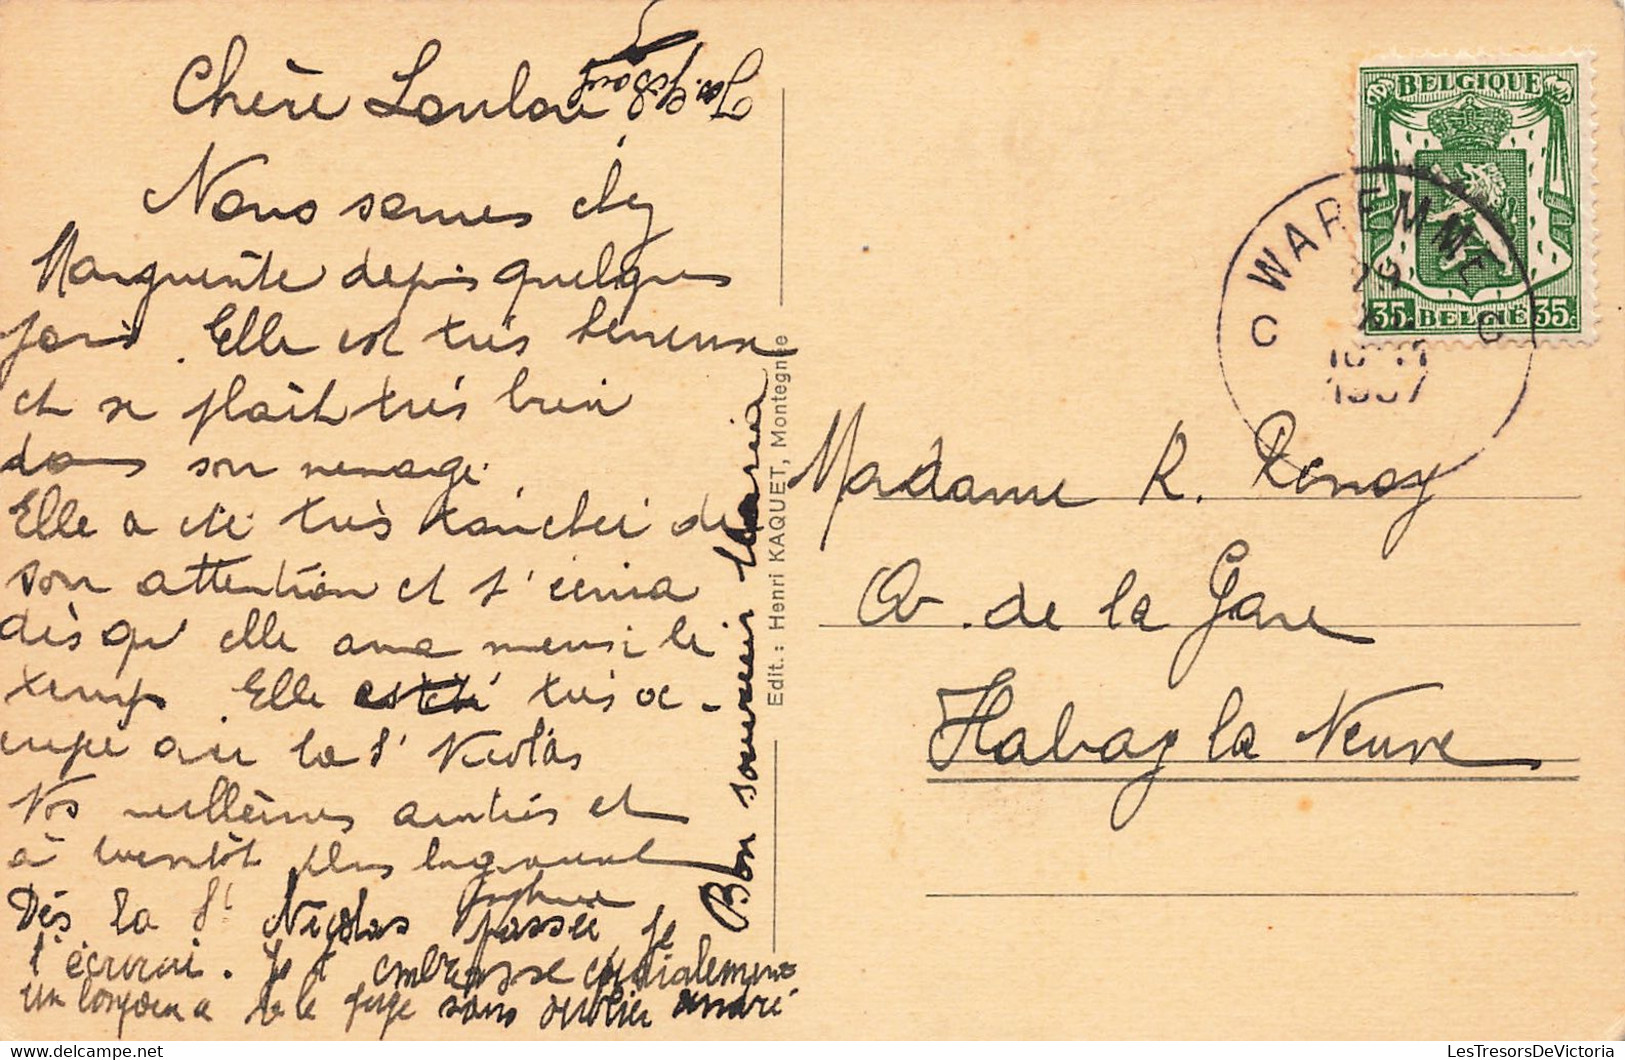 Chère Loulou
Nous sommes chez
Marguerite depuis quelques
jours. Elle est très heureuse
et se plaît très bien
dans son menage.
Elle a été très touchée de
son attention et t'écrira
dès qu'elle aura le
temps Elle est très oc-
cupée avec la St Nicolas
Nos meilleures amitiés et
à bientôt plus longuement
Dès la St Nicolas passée je
t'écrirai. Je t'embrasse cordialement
un bonjour a sans oublier André
Bon souvenir Maria
Edit.: Henri KAQUET, Montegnée
BELGIQUE
35c BELGIË 35c
WAREMME
C C
1937
Madame R. Renoy
Av. de la Gare
Habay la Neuve
LesTresorsDeVictoria